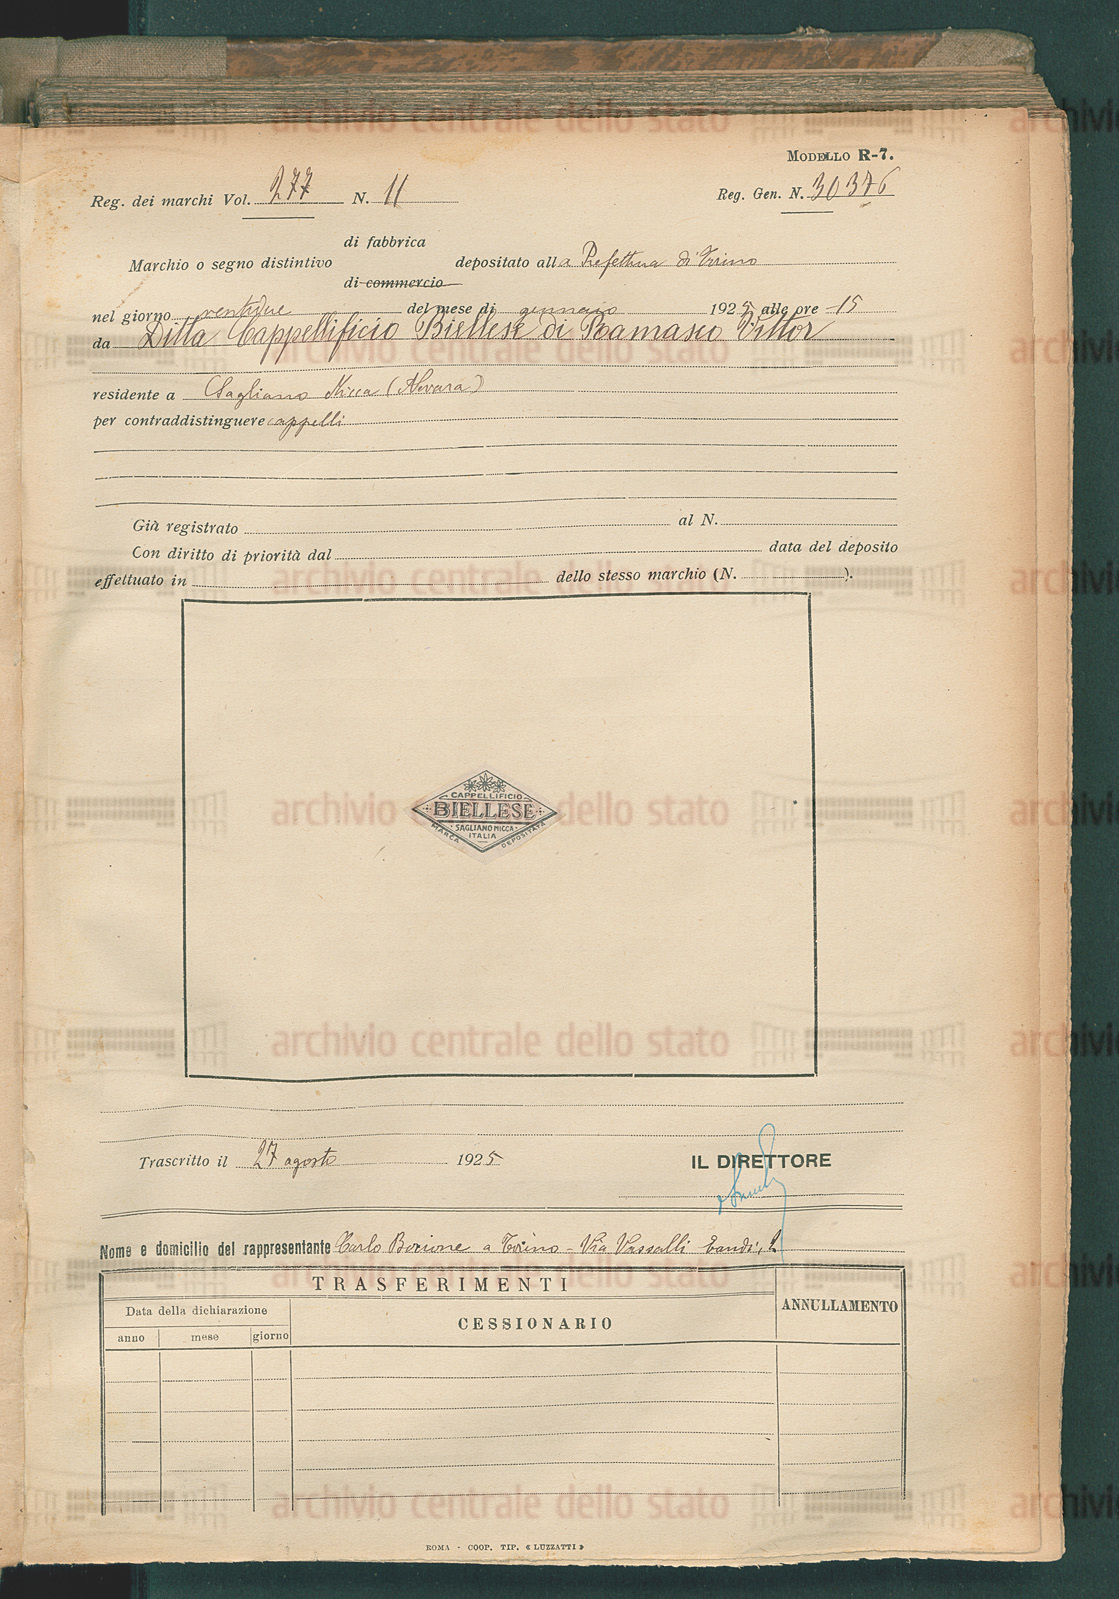 MODELLO R-7.
Reg. dei marchi Vol. 277 N. 11 Reg. Gen. N. 30376
di fabbrica
Marchio o segno distintivo depositato alla Prefettura di Torino
di commercio
nel giorno ventidue del mese di gennaio 1925 alle ore 15
da Ditta Cappellificio Biellese di Ramasco Vittor
residente a Sagliano Micca (Novara)
per contraddistinguere cappelli
Già registrato al N.
Con diritto di priorità dal data del deposito
effettuato in dello stesso marchio (N. ).
CAPPELLIFICIO
BIELLESE
SAGLIANO MICCA
ITALIA
MARCA DEPOSITATA
Trascritto il 27 agosto 1925 IL DIRETTORE
Nome e domicilio del rappresentante Carlo a Torino - Via Vassalli Eandi, 2
TRASFERIMENTI
Data della dichiarazione CESSIONARIO ANNULLAMENTO
anno mese giorno
ROMA - COOP. TIP. « LUZZATTI »
archivio centrale dello stato